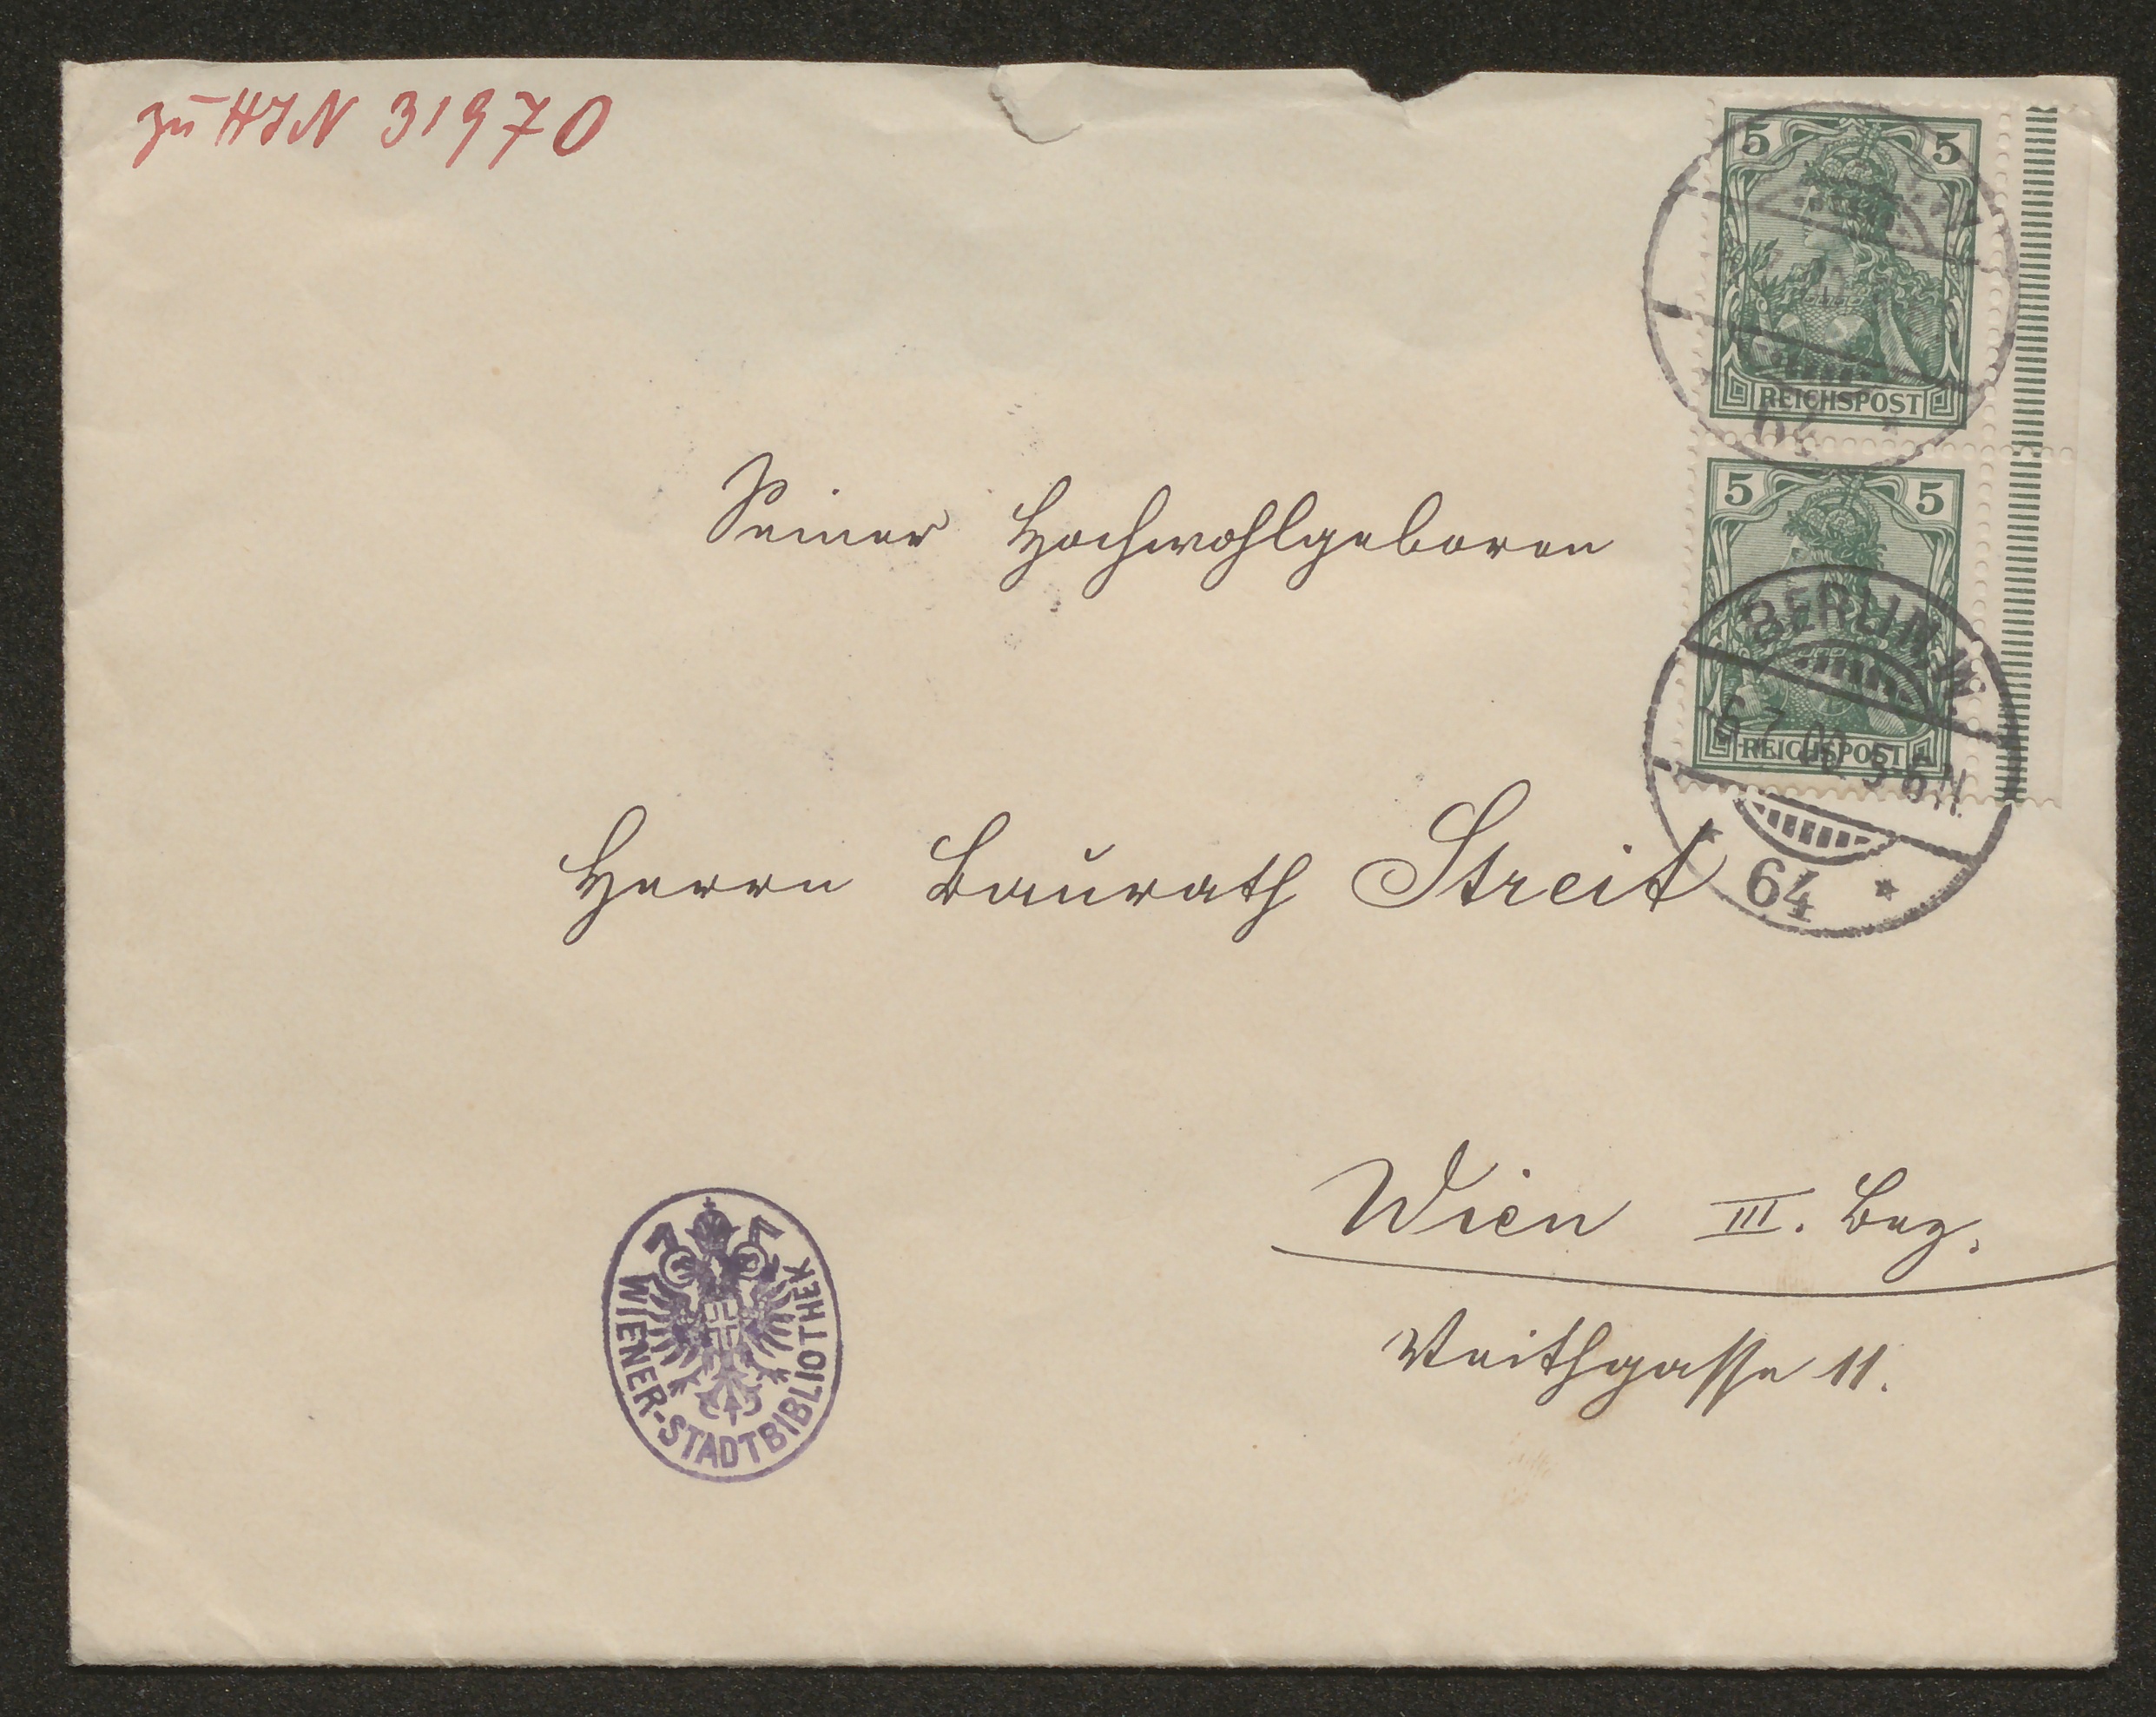 zu HIN 31970
5 5
REICHSPOST
64
5 5
REICHSPOST
BERLIN.W.
6.7.00 5-6N.
* 64 *
Seiner Hochwohlgeboren
Herrn Baurath Streit
Wien III. Bez.
Veithgasse 11.
WIENER-STADTBIBLIOTHEK